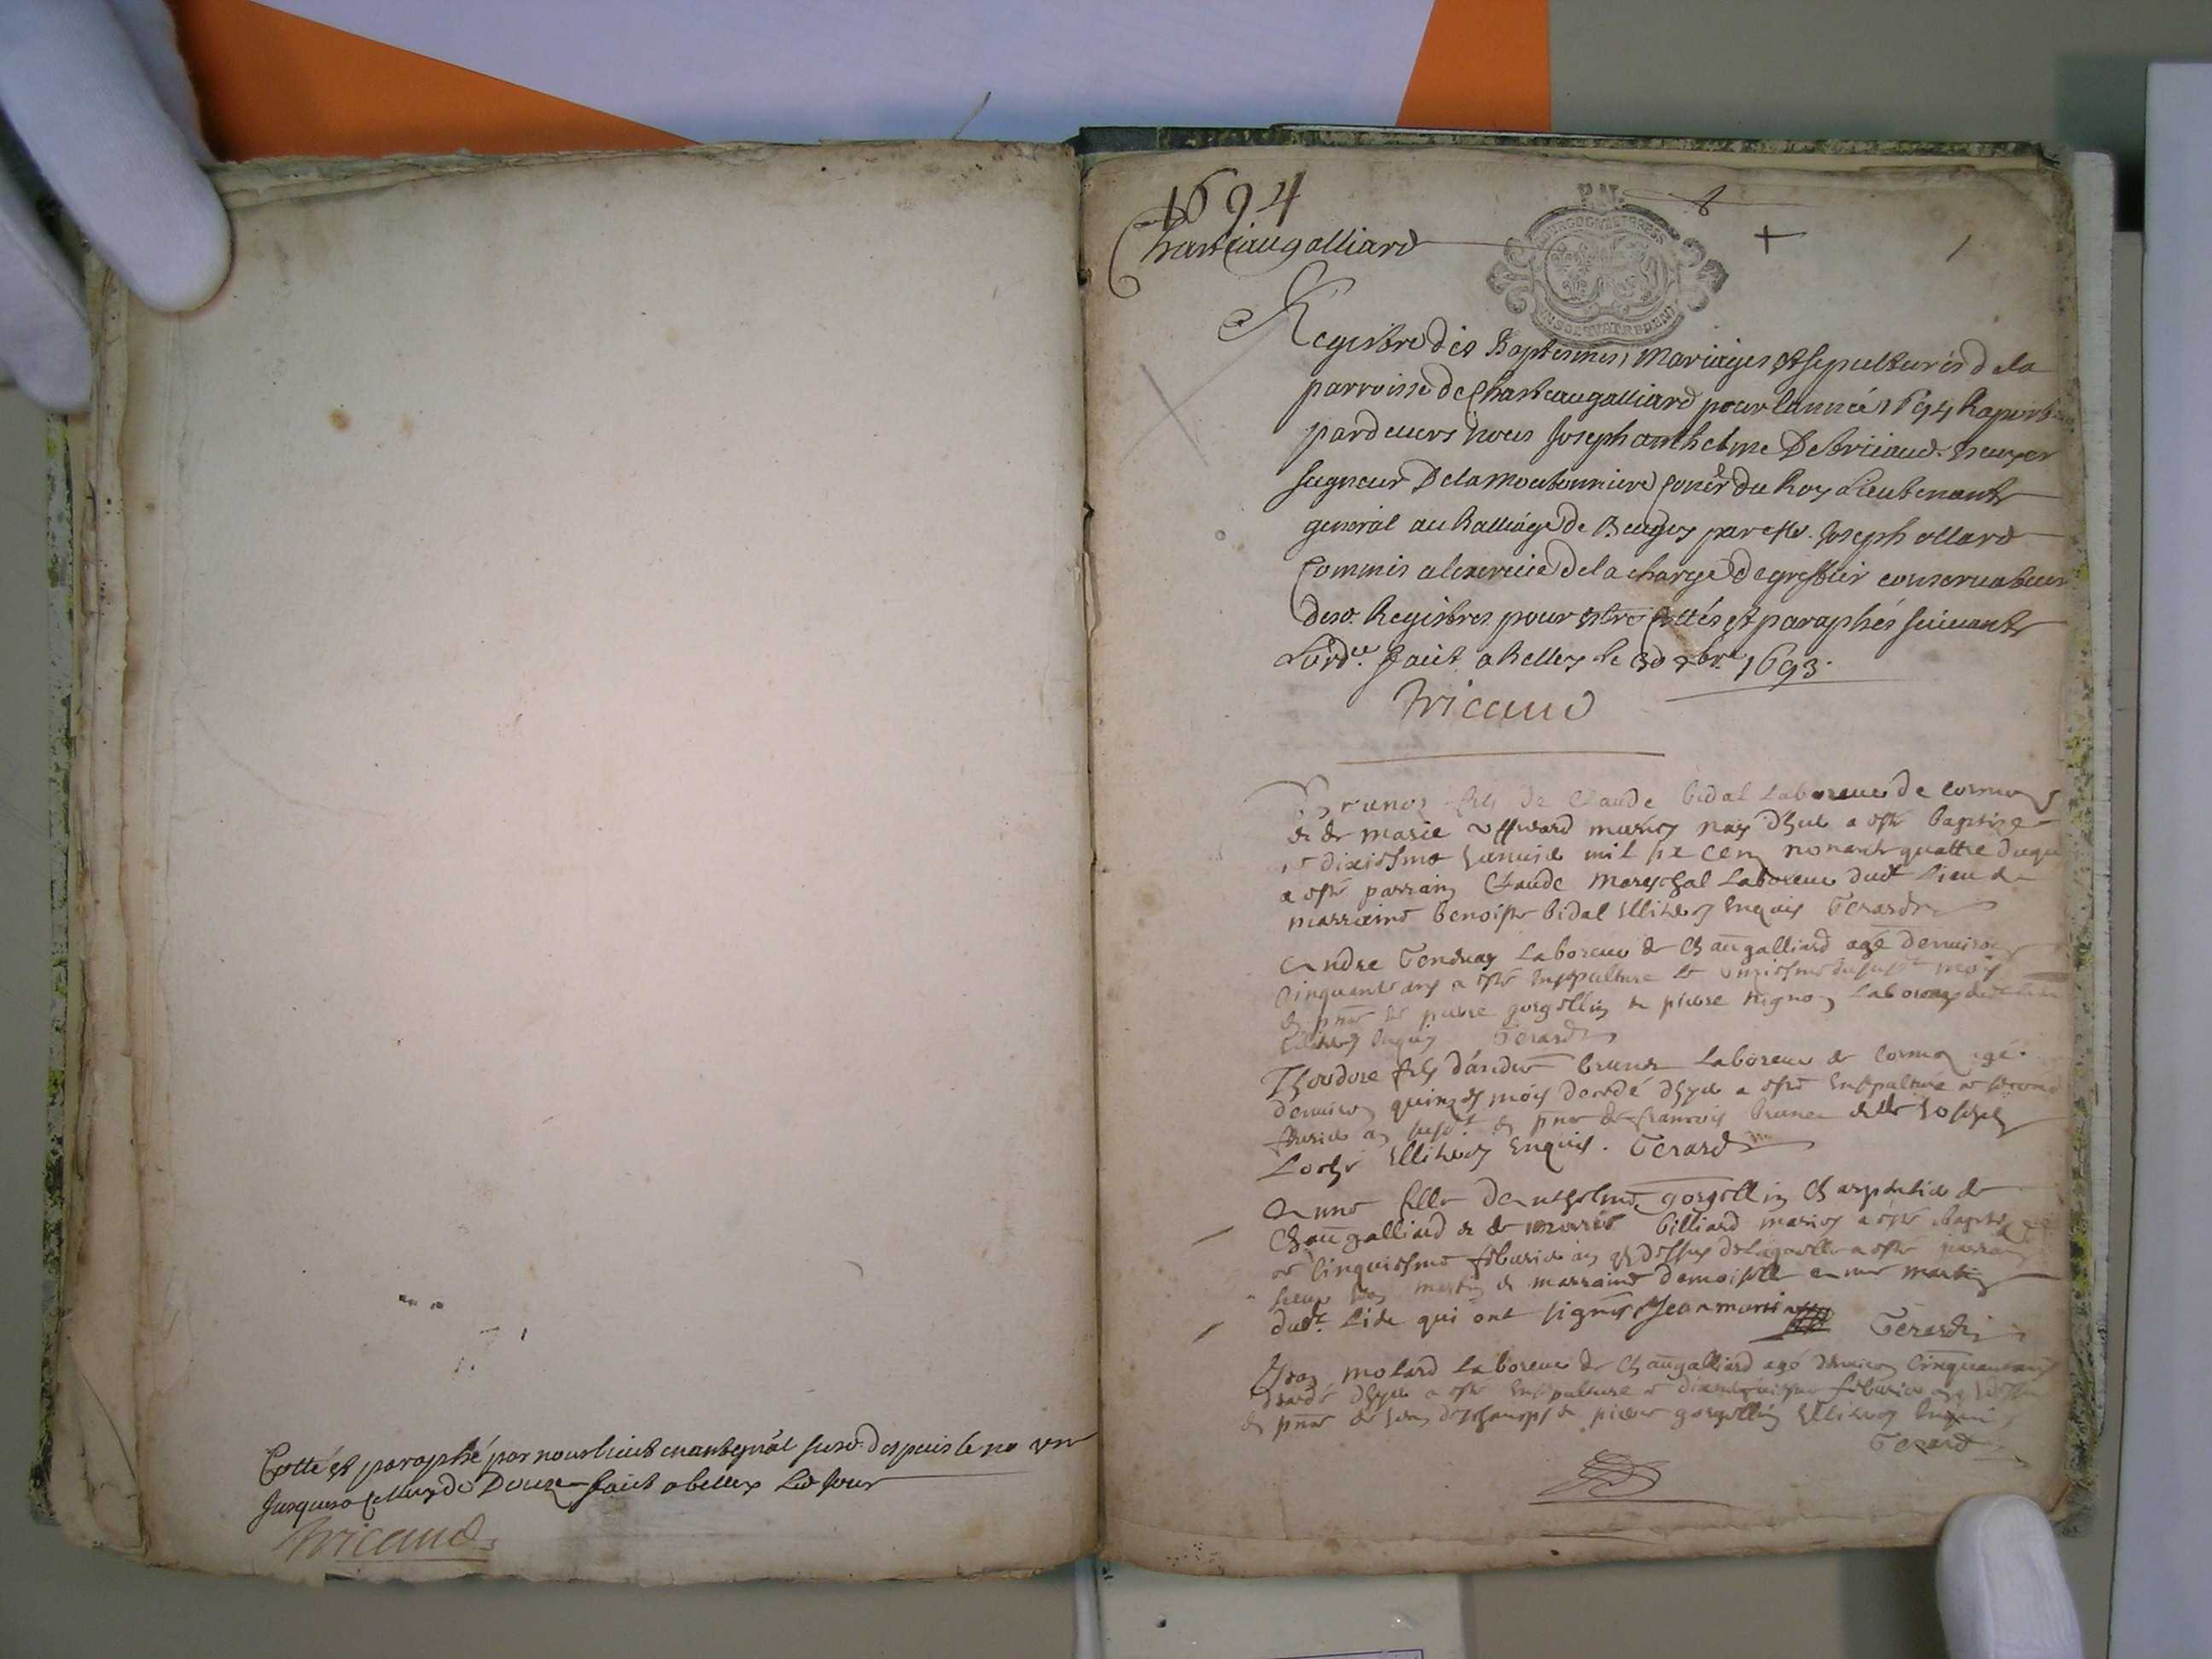 Cotté et paraphé par nous lieutenant gnâl susd. despuis le no un
Jusques a Celluy de Douze faict a belley Led Jour
Tricaud
1694
Chasteaugalliard
Registre des Baptesmes, Mariages et sepultures de la
parroisse de Chasteaugalliard pour lannée 1694 Raporté
pardevers nous Joseph anthelme De Tricaud
seigneur De la Moutonniere Coner du Roy Lieutenant
general au Balliage de Beugey par Me. Joseph ollard
Commis a lexercice de la charge de greffier conservateur
desd. Registres pour estre Cottés et paraphés suivant
Lord.ce faict a Belley le 30 xbre 1693.
Tricaud
fils de Claude bidal Laboreur de cormoz
& de marie mariez nay dhier a esté baptizé
ce dixiesme Januier mil six cens nonante quattre duquel
a esté parrain Claude mareschal Laboreur dudt Lieu &
marraine benoiste bidal Illiterez Enquis Gerard
Andre Laboreur de Chaugalliard agé denuiron
Cinquante ans a esté Ensepulturé le unziesme du susdt mois
En pnce de pierre gorgellin & pierre Laboreurs
Illiterez Enquis Gerard
Theodore fils dandre brunet Laboreur de Cormoz agé
denuiron quinze mois decedé dhyer a esté Ensepulturé ce second
feurier an susdt En pnce de francois brunet & de Joseph
Illiterez Enquis. Gerard
Anne fille danthelme gorgellin Charpentier de
Chaugalliard & de billiard mariez a esté baptisée
ce Cinquiesme feburier an que dessus de Laquelle a esté parrain
sieur Jean martin & marraine demoiselle anne martin
dudt. Lieu qui ont signés Jean martin Gerard
Jean molard Laboreur de Chaugalliard agé denuiron Cinquante ans
decedé dhyer a esté Ensepulturé ce feburier an que dessus
En pnce de Jean deschamps & pierre gorgellin Illiterez Enquis
Gerard